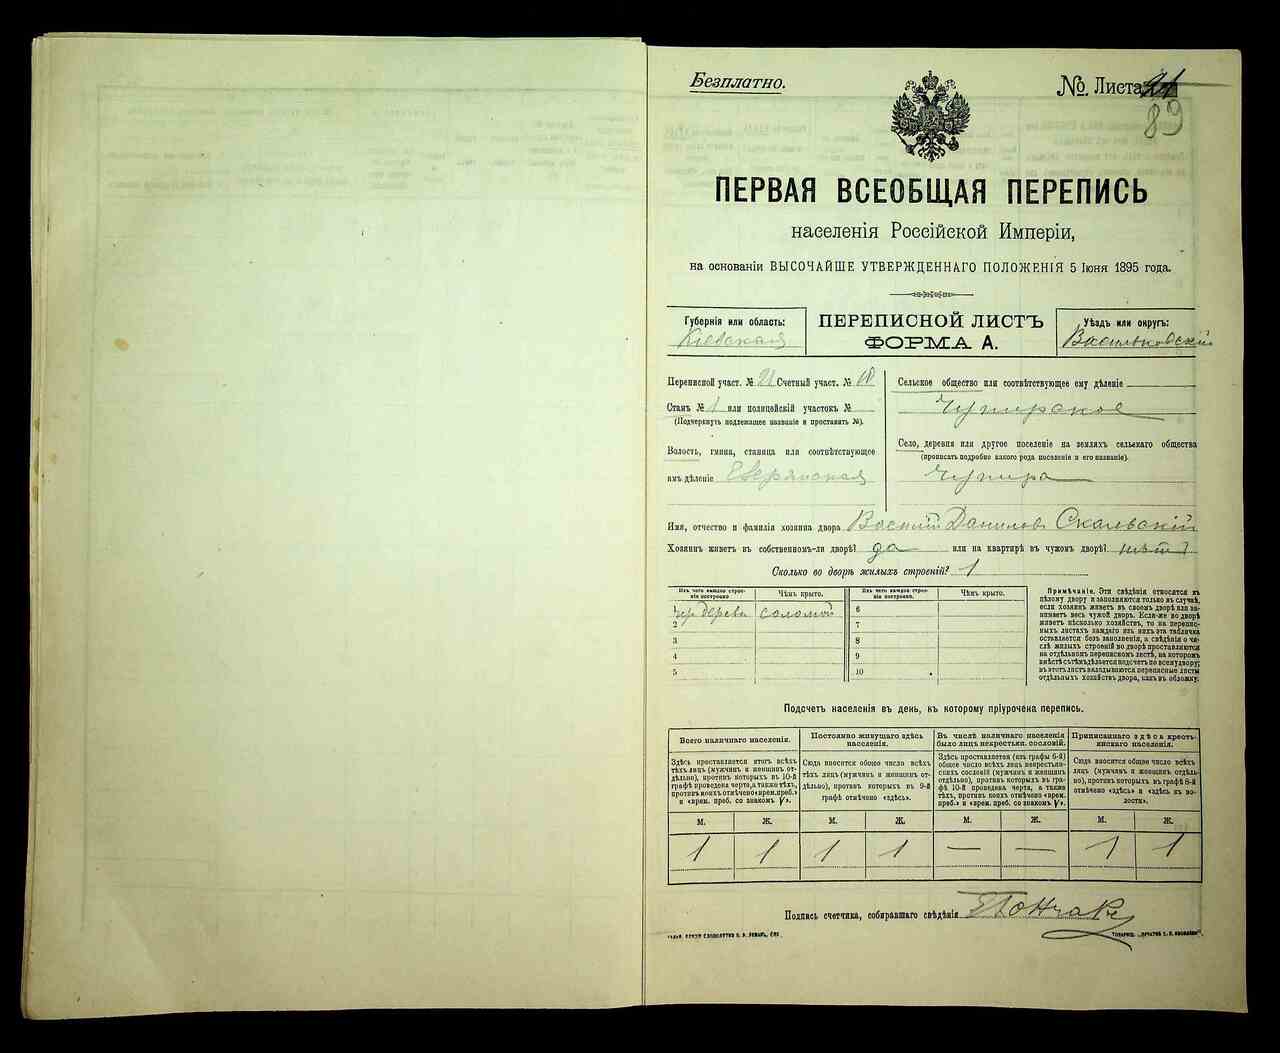 Безплатно.
№ Листа
89
ПЕРВАЯ ВСЕОБЩАЯ ПЕРЕПИСЬ
населенія Россійской Имперіи,
на основаніи ВЫСОЧАЙШЕ УТВЕРЖДЕННАГО ПОЛОЖЕНІЯ 5 Іюня 1895 года.
Губернія или область:
Кіевская
ПЕРЕПИСНОЙ ЛИСТЪ
ФОРМА А.
Уѣздъ или округъ:
Васильковскій
Переписной участ. № Счетный участ. №
Станъ № 1 или полицейскій участокъ №
(Подчеркнуть подлежащее названіе и проставить №).
Волость, гмина, станица или соотвѣтствующее
имъ дѣленіе
Сельское общество или соотвѣтствующее ему дѣленіе
Чупирское
Село, деревня или другое поселеніе на земляхъ сельскаго общества
(прописать подробно какого рода поселеніе и его названіе).
Чупира
Имя, отчество и фамилія хозяина двора Василій Данилов Скальскій
Хозяинъ живетъ въ собственномъ-ли дворѣ? да или на квартирѣ въ чужомъ дворѣ? нѣтъ
Сколько во дворѣ жилыхъ строеній? 1
Изъ чего каждое строеніе построено
Чѣмъ крыто.
Изъ чего каждое строеніе построено.
Чѣмъ крыто.
1 дерева соломой 6
2 7
3 8
4 9
5 10
Примѣчаніе. Эти свѣдѣнія относятся къ
цѣлому двору и заполняются только въ случаѣ,
если хозяинъ живетъ въ своемъ дворѣ или занимаетъ
весь чужой дворъ. Если-же во дворѣ
живетъ нѣсколько хозяйствъ, то на переписныхъ
листахъ каждаго изъ нихъ эта табличка
оставляется безъ заполненія, а свѣдѣнія о числѣ
жилыхъ строеній во дворѣ проставляются
на отдѣльномъ переписномъ листѣ, на которомъ
вмѣстѣ съ тѣмъ дѣлается подсчетъ по всему двору;
въ этотъ листъ вкладываются переписные листы
отдѣльныхъ хозяйствъ двора, какъ въ обложку.
Подсчетъ населенія въ день, къ которому пріурочена перепись.
Всего наличнаго населенія.
Постоянно живущаго здѣсь
населенія.
Въ числѣ наличнаго населенія
было лицъ некрестьян. сословій.
Приписаннаго здѣсь крестьянскаго
населенія.
Здѣсь проставляется итогъ всѣхъ
тѣхъ лицъ (мужчинъ и женщинъ отдѣльно),
противъ которыхъ въ 10-й
графѣ проведена черта, а также тѣхъ,
противъ коихъ отмѣчено «врем. преб.»
и «врем. преб. со знакомъ V».
Сюда вносится общее число всѣхъ
тѣхъ лицъ (мужчинъ и женщинъ отдѣльно),
противъ которыхъ въ 9-й
графѣ отмѣчено «здѣсь».
Здѣсь проставляется (изъ графы 6-й)
общее число всѣхъ лицъ некрестьянскихъ
сословій (мужчинъ и женщинъ
отдѣльно), противъ которыхъ въ графѣ
10-й проведена черта, а также
тѣхъ, противъ коихъ отмѣчено «врем.
преб.» и «врем. преб. со знакомъ V».
Сюда вносится общее число всѣхъ
лицъ (мужчинъ и женщинъ отдѣльно),
противъ которыхъ въ графѣ 8-й
отмѣчено «здѣсь» и «здѣсь къ волости».
М. Ж. М. Ж. М. Ж. М. Ж.
1 1 1 1 — — 1 1
Подпись счетчика, собиравшаго свѣдѣнія